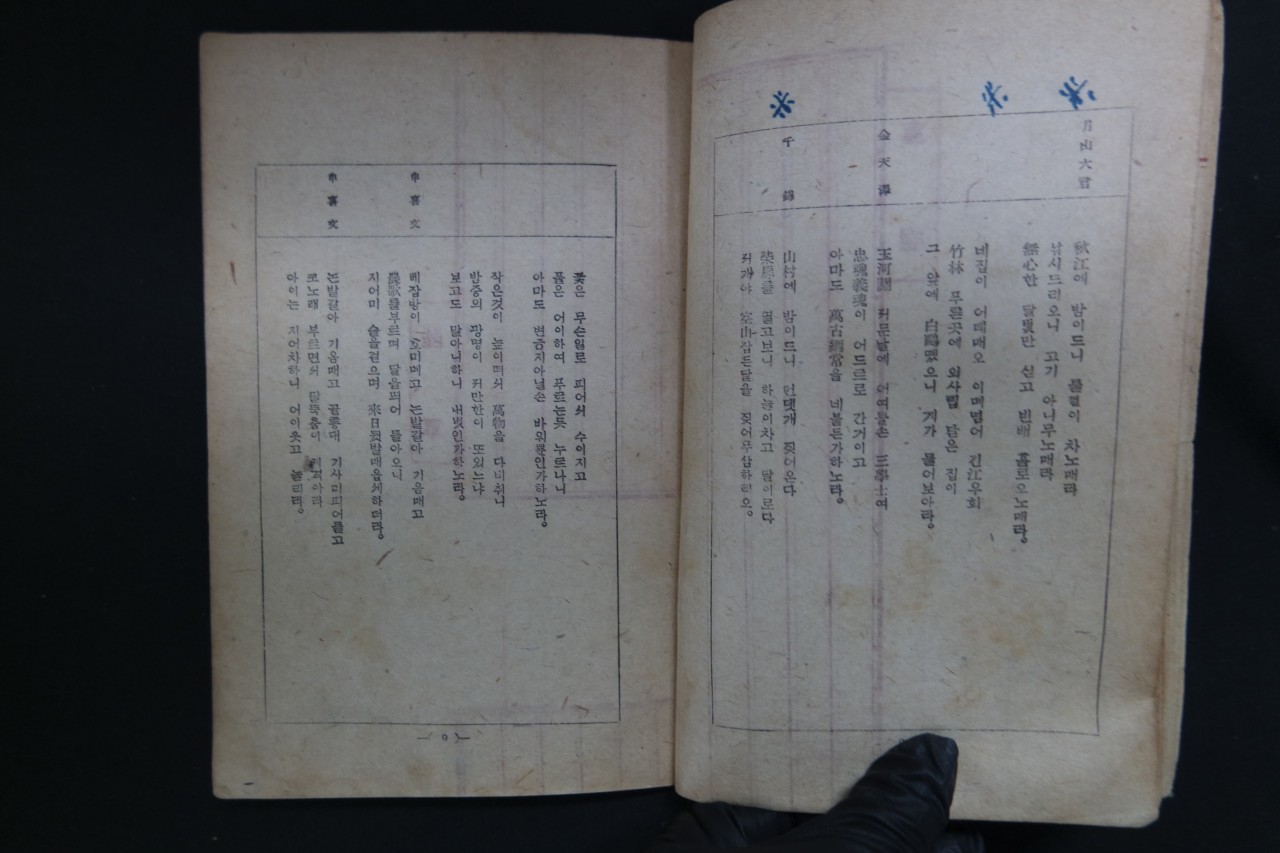 月山大君
秋江에 밤이드니 물결이 차노매라
낚시드리오니 고기 아니무노매라
無心한 달빛만 싣고 뷘배 홀로오노매라。
네집이 어데매오 이뫼넘어 긴江우회
竹林 푸른곳에 외사립 닫은 집이
그 앞에 白鷗떴으니 게가 물어보아라。
金天澤
아마도 萬古綱常을 네붙든가하노라。
千錦
山村에 밤이드니 먼댓개 짖어온다
柴扉를 열고보니 하늘이차고 달이로다
저개야 空山잠든달을 짖어무삼하리오。
꽃은 무슨일로 피어쇠 수이지고
풀은 어이하여 푸르는듯 누르나니
아마도 변증지아닐손 바위뿐인가하노라。
작은것이 높이떠쇠 萬物을 다비최니
밤중의 광명이 저만한이 또있느냐
보고도 말아니하니 내벗인가하노라。
申喜文
베잠방이 호미메고 논밭갈아 기음매고
農歌를부르며 달을띄어 돌아오니
지어미 술을걸으며 來日뒷밭매옵쇠하더라。
申喜文
논밭갈아 기음매고 곰롱대 기사미피어물고
코노래 부르면쇠
아이는 지어차하니 어이웃고